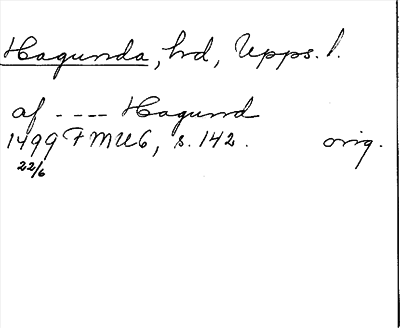 Hagunda, hd, Upps. l.
af ---- Hagund
1499 FMU 6, s. 142. orig.
22/6